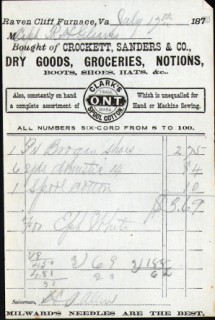 Raven Cliff Furnace, Va, July 17th 187
M
Bought of CROCKETT, SANDERS & CO.,
DRY GOODS, GROCERIES, NOTIONS,
BOOTS, SHOES, HATS, &c.
Also, constantly on hand a complete assortment of
CLARK'S
TRADE
O.N.T.
MARK
SPOOL COTTON
Which is unequalled for Hand or Machine Sewing.
ALL NUMBERS SIX-CORD FROM 8 TO 100.
1 Pr Brogan Shoes 2 75
6 yds domestic 84
1 Spool cotton 10
$3.69
For
Salesman,
MILWARD'S NEEDLES ARE THE BEST.